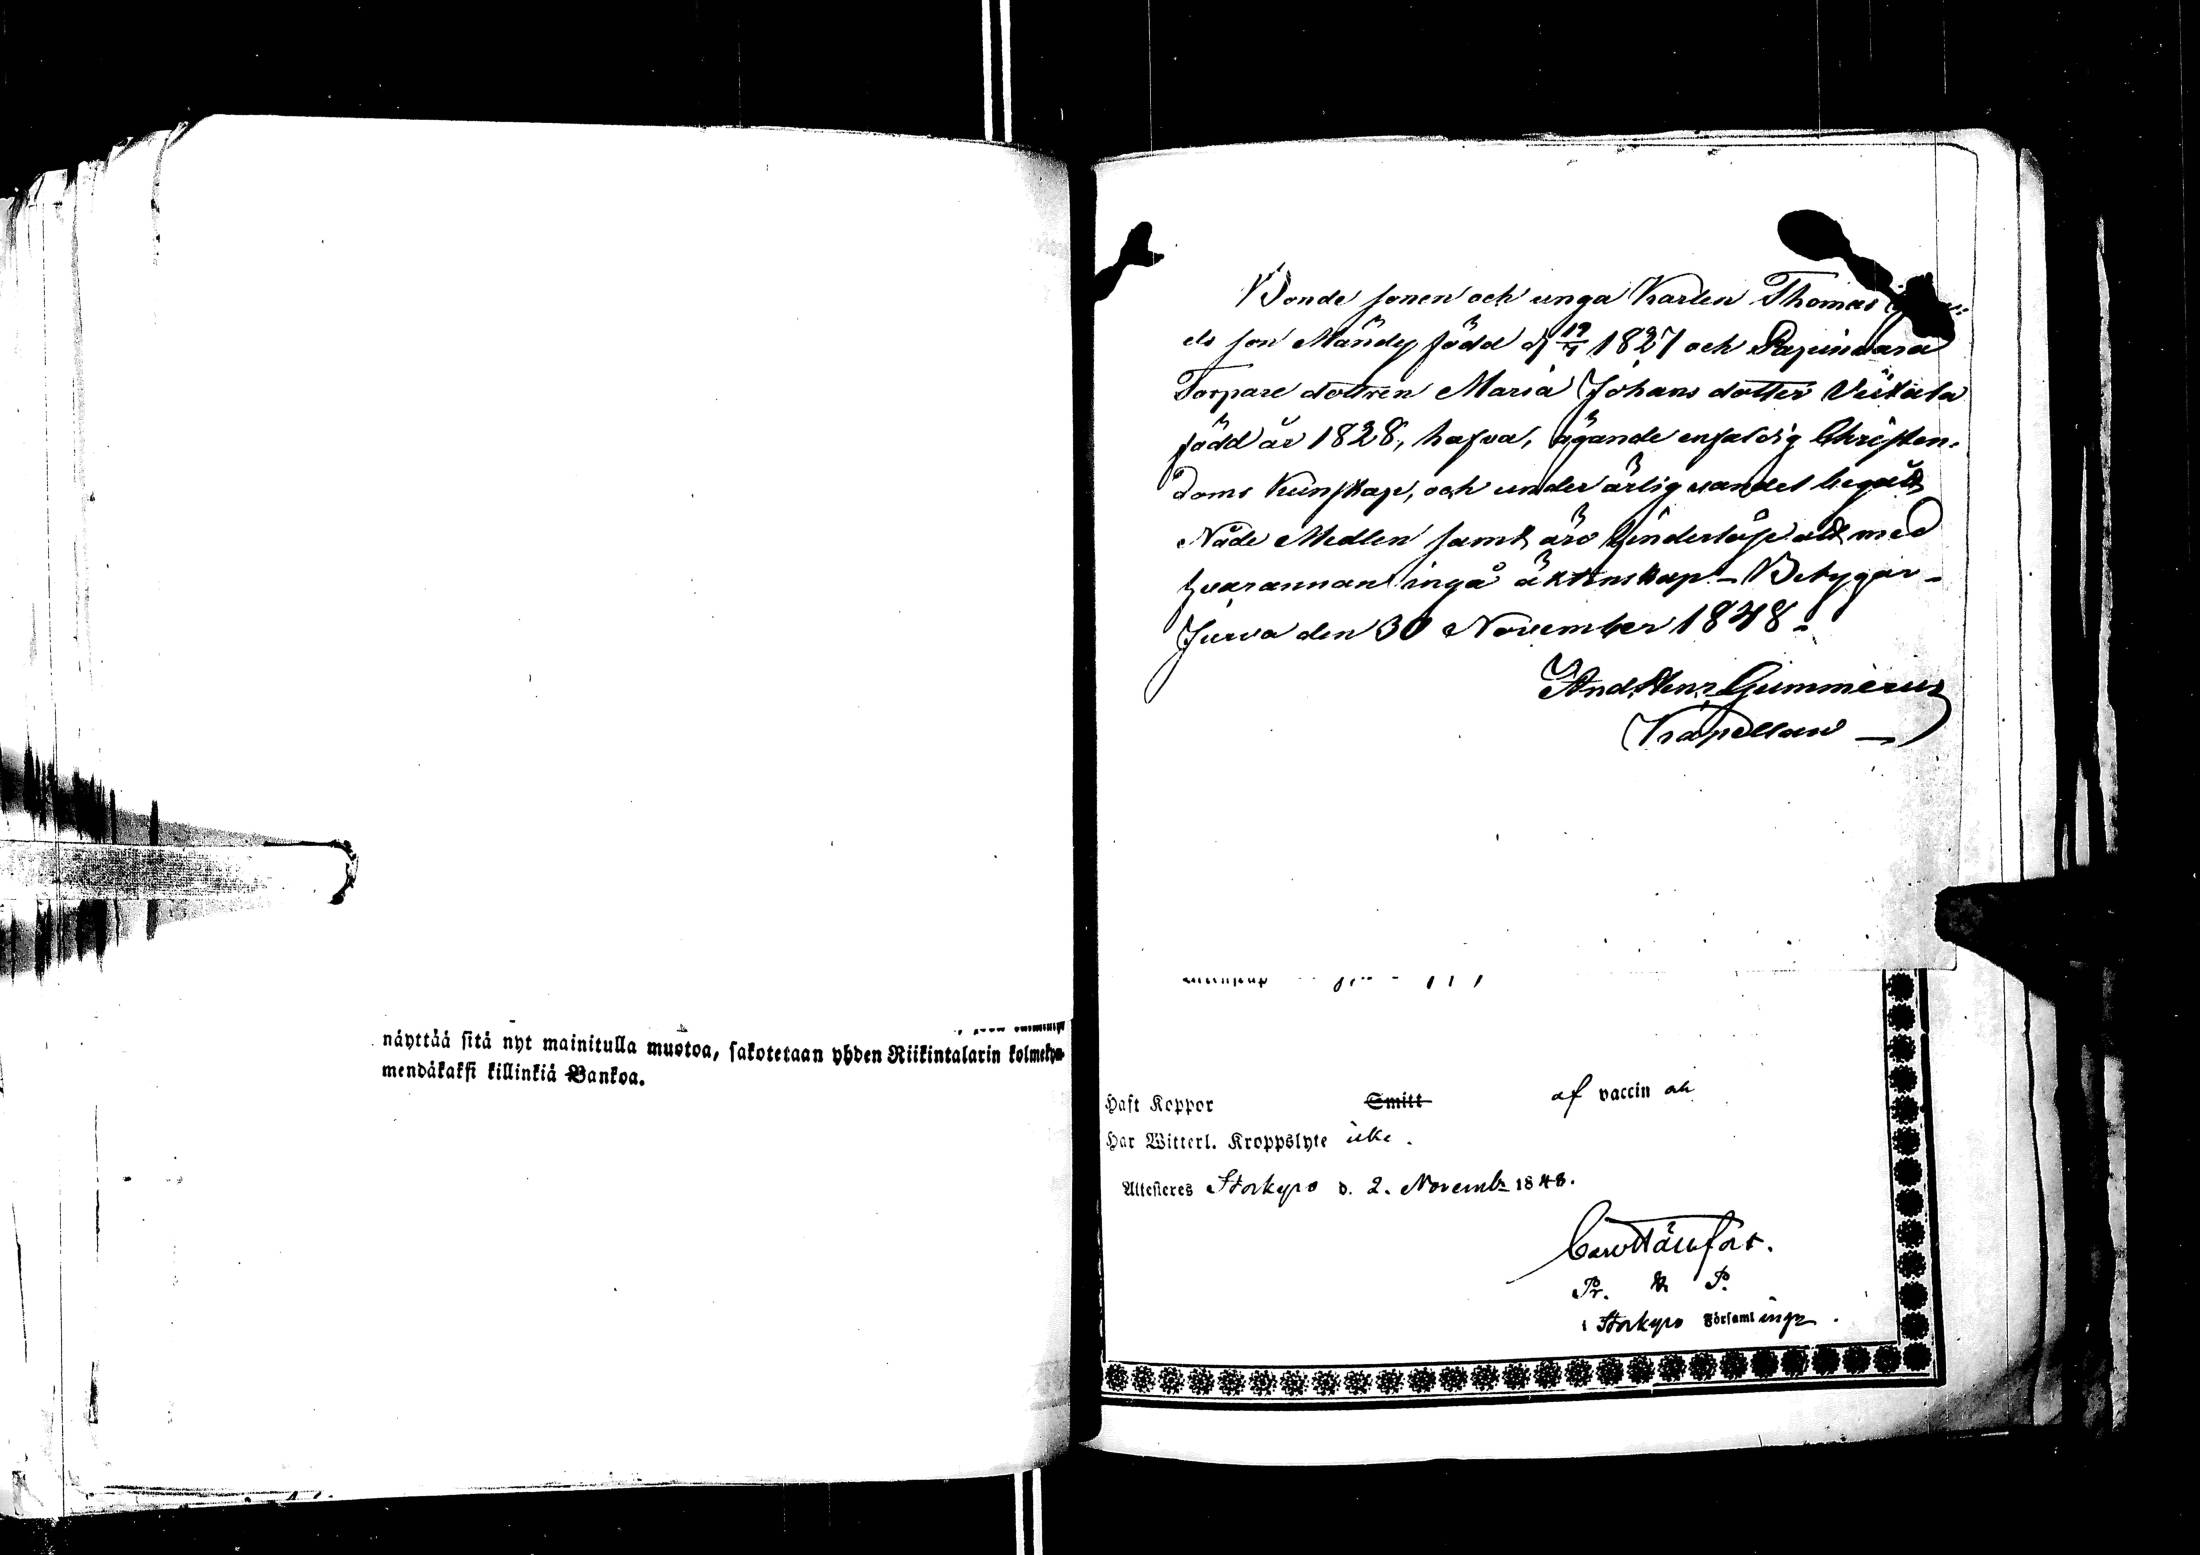 näyttää sitä nyt mainitulla muotoa, sakotetaan yhden Riikintalarin kolmeky-
mendäkaksi killinkiä Bankoa.
Bonde sonen och unga Karlen Thomas
els son Mändy född d 19/7 1827 och
Torpare dottren Maria Johans dotter
född år 1828, hafva, ägande enfaldig Christen-
doms Kunskap, och under ärlig vandel begått
Nåde Medlen samt äro hinderlöse att med
hvarannan ingå äktenskap – Betygar –
Jurva den 30 November 1848 –
And. Henr. Gummerus
Kapellan –
Haft Koppor Smitt af vaccin
Har Witterl. Kroppslyte icke.
Attesteres Storkyro d. 2. Novemb. 1848.
Pr. P.
i Storkyro Församlings